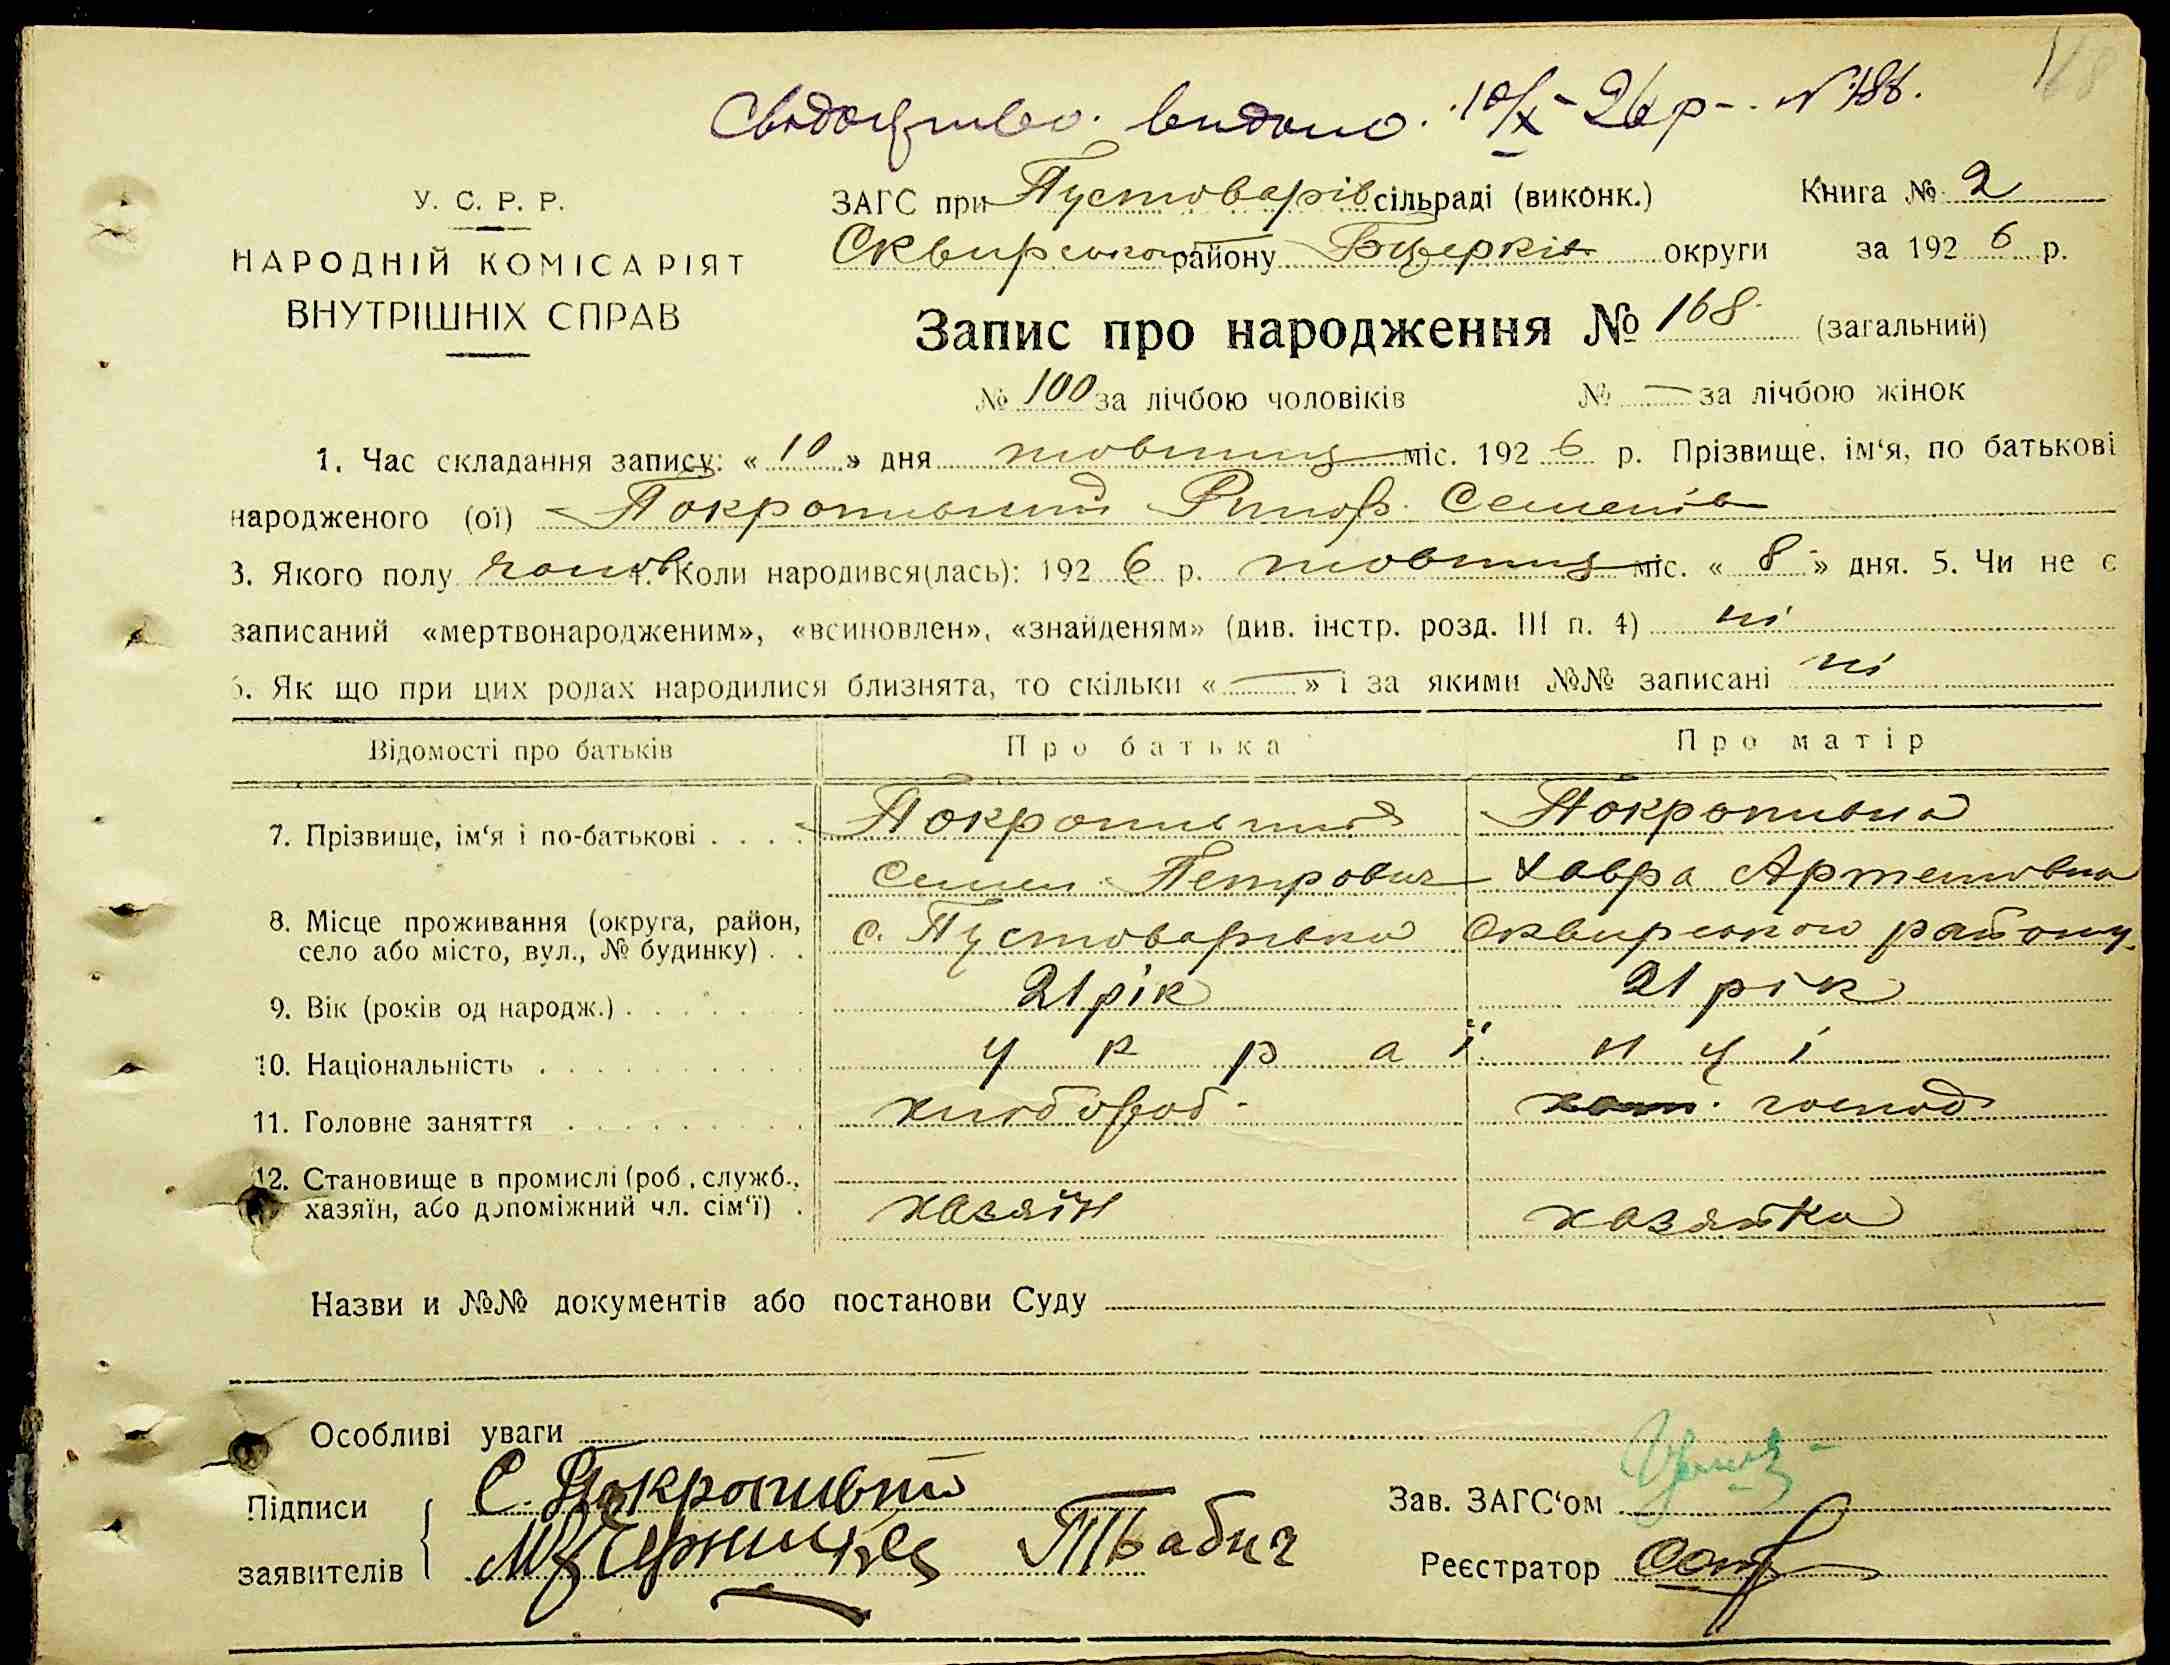 Свідоцтво видано 10/X – 26 р. № 186.
168
У. С. Р. Р.
НАРОДНІЙ КОМІСАРІЯТ
ВНУТРІШНІХ СПРАВ
ЗАГС при Пустоварів сільраді (виконк.) Книга № 2
Сквирського району Бцерків округи за 1926 р.
Запис про народження № 168 (загальний)
№ 100 за лічбою чоловіків № — за лічбою жінок
1. Час складання запису: « 10 » дня жовтня міс. 1926 р. Прізвище, ім‘я, по батькові
народженого (ої) Покропивний Семенів
3. Якого полу чолов 4. Коли народився(лась): 1926 р. жовтня міс. « 8 » дня. 5. Чи не є
записаний «мертвонародженим», «всиновлен», «знайденям» (див. інстр. розд. III п. 4) ні
6. Як що при цих родах народилися близнята, то скільки « — » і за якими №№ записані ні
Відомості про батьків Про батька Про матір
7. Прізвище, ім‘я і по-батькові . . . . Покропивний Покропивна
Семен Петрович Хавра Артемовна
8. Місце проживання (округа, район,
село або місто, вул., № будинку) . . с. Пустоварівка Сквирського району
9. Вік (років од народж.) . . . . . . . 21 рік 21 рік
10. Національність . . . . . . . . . . українці
11. Головне заняття . . . . . . . . . хліბороб. господ
12. Становище в промислі (роб., служб.,
хазяїн, або допоміжний чл. сім‘ї) . хазяїн хазяйка
Назви и №№ документів або постанови Суду
Особливі уваги
Підписи
заявителів
С. Покропивний
Зав. ЗАГС‘ом
Реєстратор